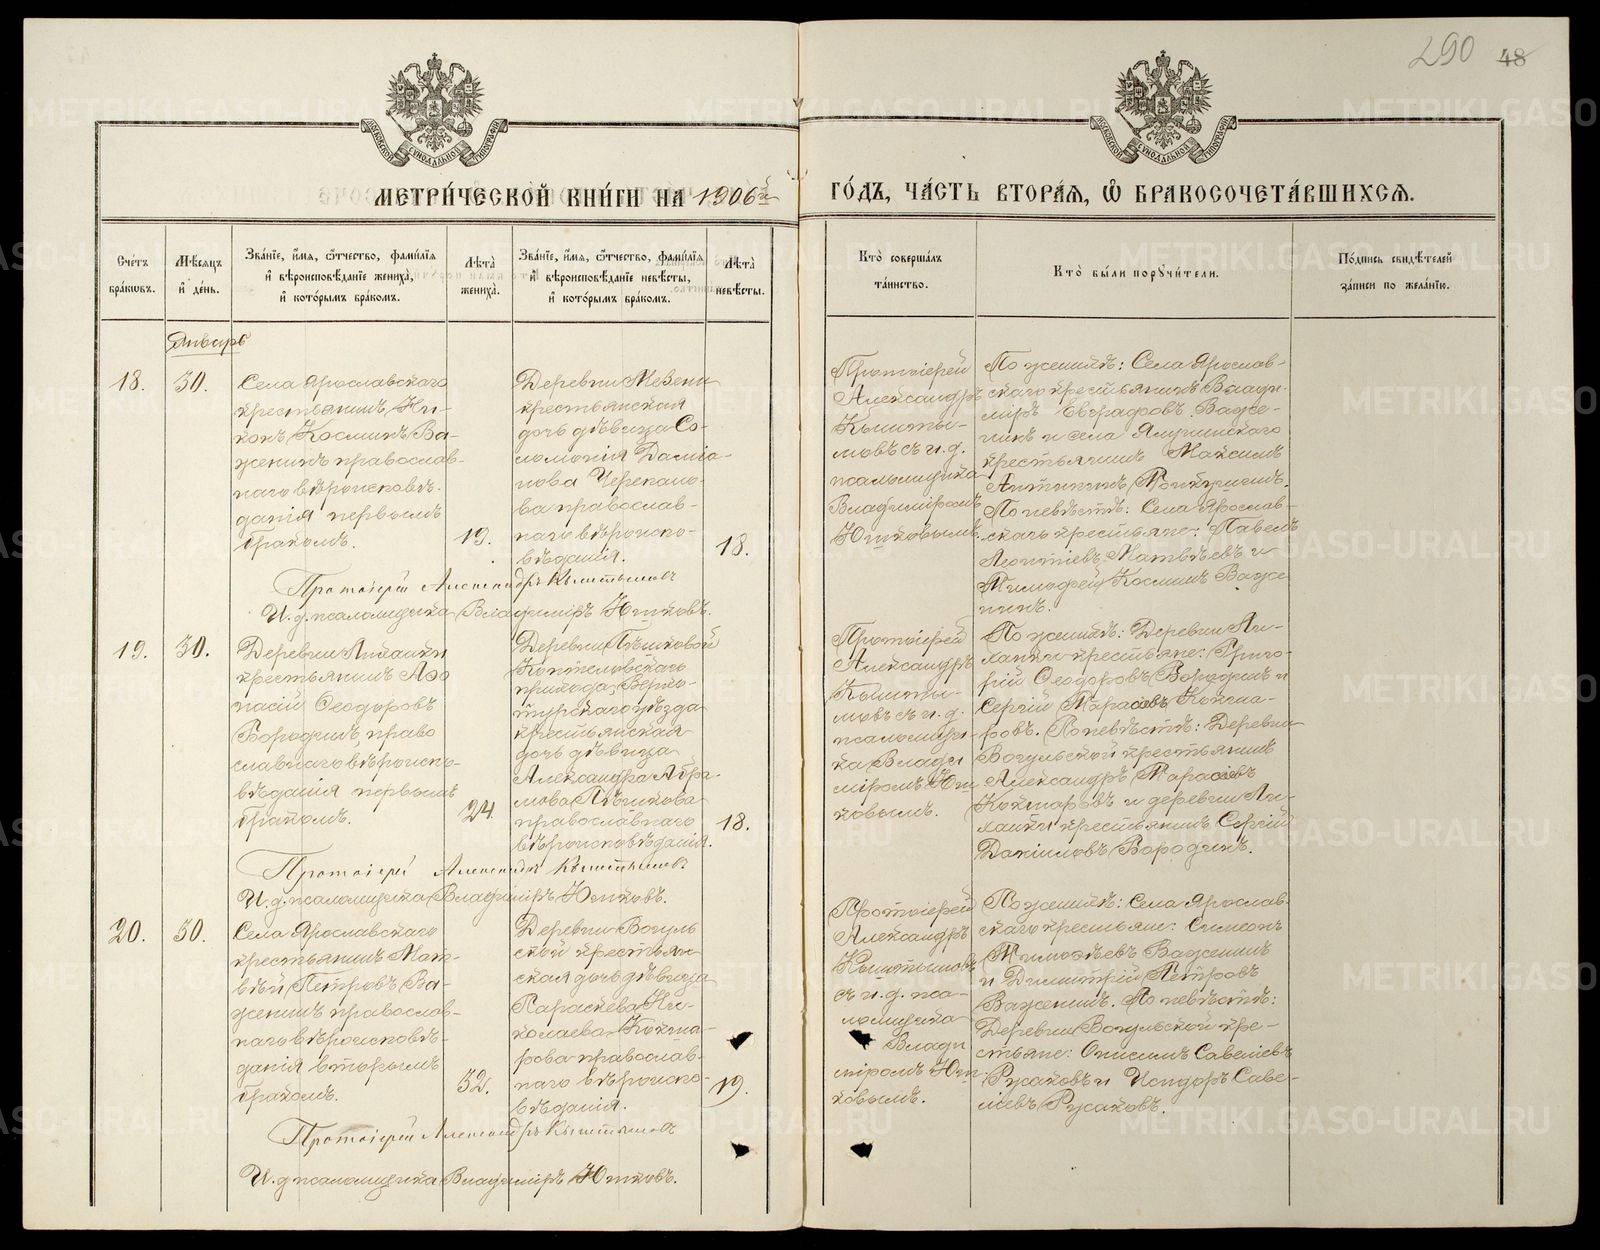 290 48
МЕТРИ́ЧЕСКОЙ КНИ́ГИ НА 1906й ГО́ДЪ, ЧА́СТЬ ВТОРА́Я, Ѿ БРАКОСОЧЕТА́ВШИХСЯ.
Сче́тъ бра́кωвъ.
Мѣ́сяцъ и҆ де́нь.
Зва́нїе, и҆́мя, ѻ҆́тчество, фами́лїя и҆ вѣроисповѣ́данїе жениха̀, и҆ кото́рымъ бра́комъ.
Лѣ́та жениха̀.
Зва́нїе, и҆́мя, ѻ҆́тчество, фами́лїя и҆ вѣроисповѣ́данїе невѣ́сты, и҆ кото́рымъ бра́комъ.
Лѣ́та невѣ́сты.
Кто̀ соверша́лъ та́инство.
Кто̀ бы́ли пору́чители.
По́дпись свидѣ́телей за́писи по жела́нїю.
Январь
18.
30.
Села Ярославскаго
крестьянинъ Ни-
конъ Косминъ Ва-
женинъ православ-
наго вѣроисповѣ-
данія первымъ
бракомъ.
19.
Деревни Мезени
крестьянская
дочь дѣвица Со-
ломонія Даміа-
нова Черепано-
ва православ-
наго вѣроиспо-
вѣданія.
18.
Протоіерей
Александръ
Кышты-
мовъ съ и. д.
псаломщика
Владиміромъ
Юшковымъ.
По женихѣ: Села Ярослав-
скаго крестьянинъ Влади-
миръ Евграфовъ Важе-
нинъ и села
крестьянинъ Максимъ
По невѣстѣ: Села Ярослав-
скаго крестьяне: Павелъ
Леонтіевъ Матвѣевъ и
Тимофей Косминъ Важе-
нинъ.
Протоіерей Александръ Кыштымовъ
И. д. псаломщика Владиміръ Юшковъ.
19.
30.
Деревни Липайки
крестьянинъ Аѳа
насій Ѳеодоровъ
Бородинъ, право
славнаго вѣроиспо-
вѣданія первымъ
бракомъ.
24.
Деревни Пѣшковой
прихода, Верхо-
турскаго уѣзда
крестьянская
дочь дѣвица
Александра Абра-
мова Пѣшкова
православнаго
вѣроисповѣданія.
18.
Протоіерей
Александръ
Кышты-
мовъ съ и. д.
псаломщи-
ка Влади
міромъ Юш
ковымъ.
По женихѣ: Деревни Ли-
пайки крестьяне: Григо-
рій Ѳеодоровъ Бородинъ и
Сергій Тарасовъ Кокша-
ровъ. По невѣстѣ: Деревни
Вогульской крестьянинъ
Александръ Тарасовъ
Кокшаровъ и деревни Ли-
пайки крестьянинъ Сергій
Даніиловъ Бородинъ.
Протоіерей Александръ Кыштымовъ
И. д. псаломщика Владиміръ Юшковъ.
20.
30.
Села Ярославскаго
крестьянинъ Мат-
вѣй Петровъ Ва-
женинъ православ-
наго вѣроисповѣ-
данія вторымъ
бракомъ.
32.
Деревни Вогуль
ской крестьян-
ская дочь дѣвица
Параскева Ни-
колаева Кокша-
рова православ-
наго вѣроиспо-
вѣданія.
19.
Протоіерей
Александръ
Кыштымовъ
съ и. д. пса-
ломщика
Влади
міромъ Юш-
ковымъ.
По женихѣ: Села Ярослав-
скаго крестьяне: Симеонъ
Тимоѳеевъ Важенинъ
и Димитрій Петровъ
Важенинъ. По невѣстѣ:
Деревни Вогульской кре-
стьяне: Онисимъ Савеліевъ
Русаковъ и Исидоръ Саве-
ліевъ Русаковъ.
Протоіерей Александръ Кыштымовъ
И. д. псаломщика Владиміръ Юшковъ.
METRIKI.GASO-URAL.RU